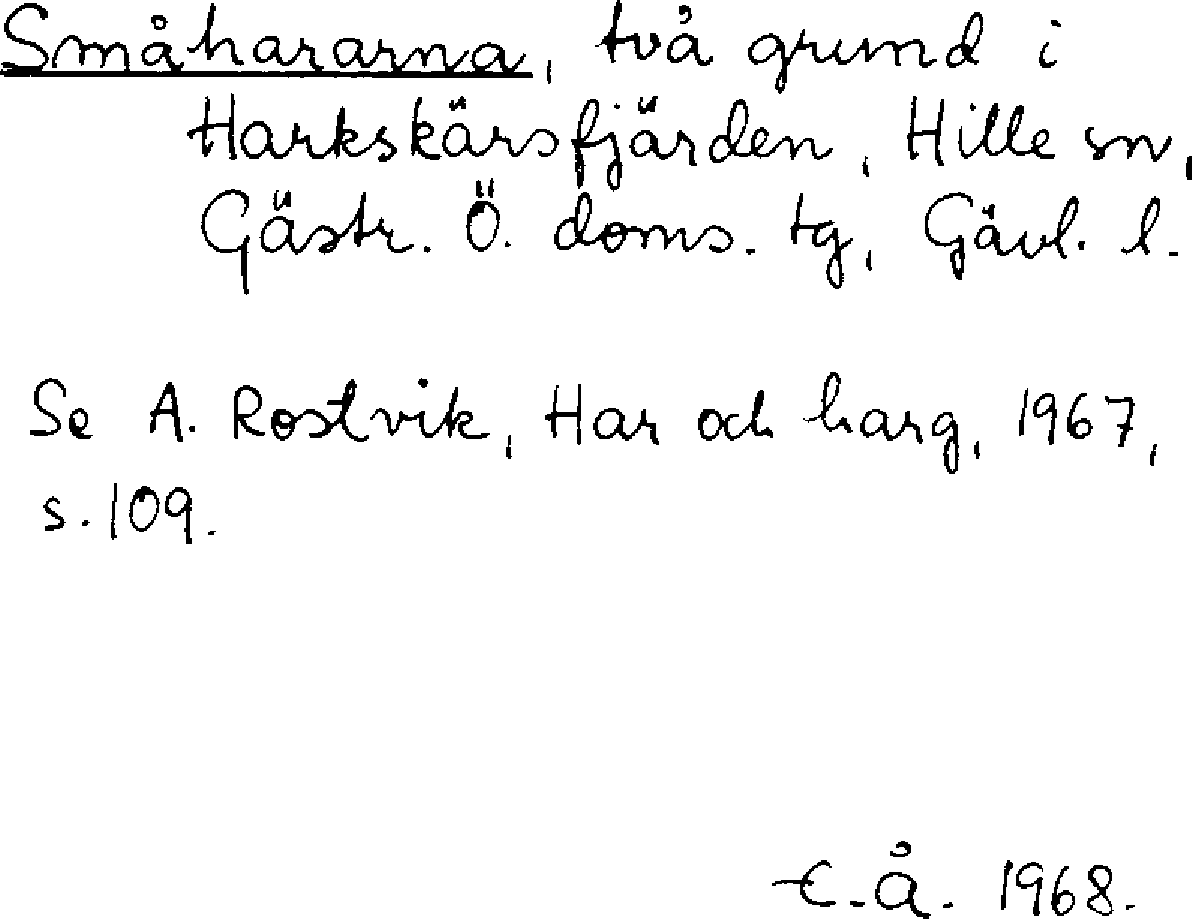 Småhararna, två grund i
Harkskärsfjärden, Hille sn,
Gästr. Ö. doms. tg, Gävl. l.
Se A. Rostvik, Har och harg, 1967,
s. 109.
E. Å. 1968.